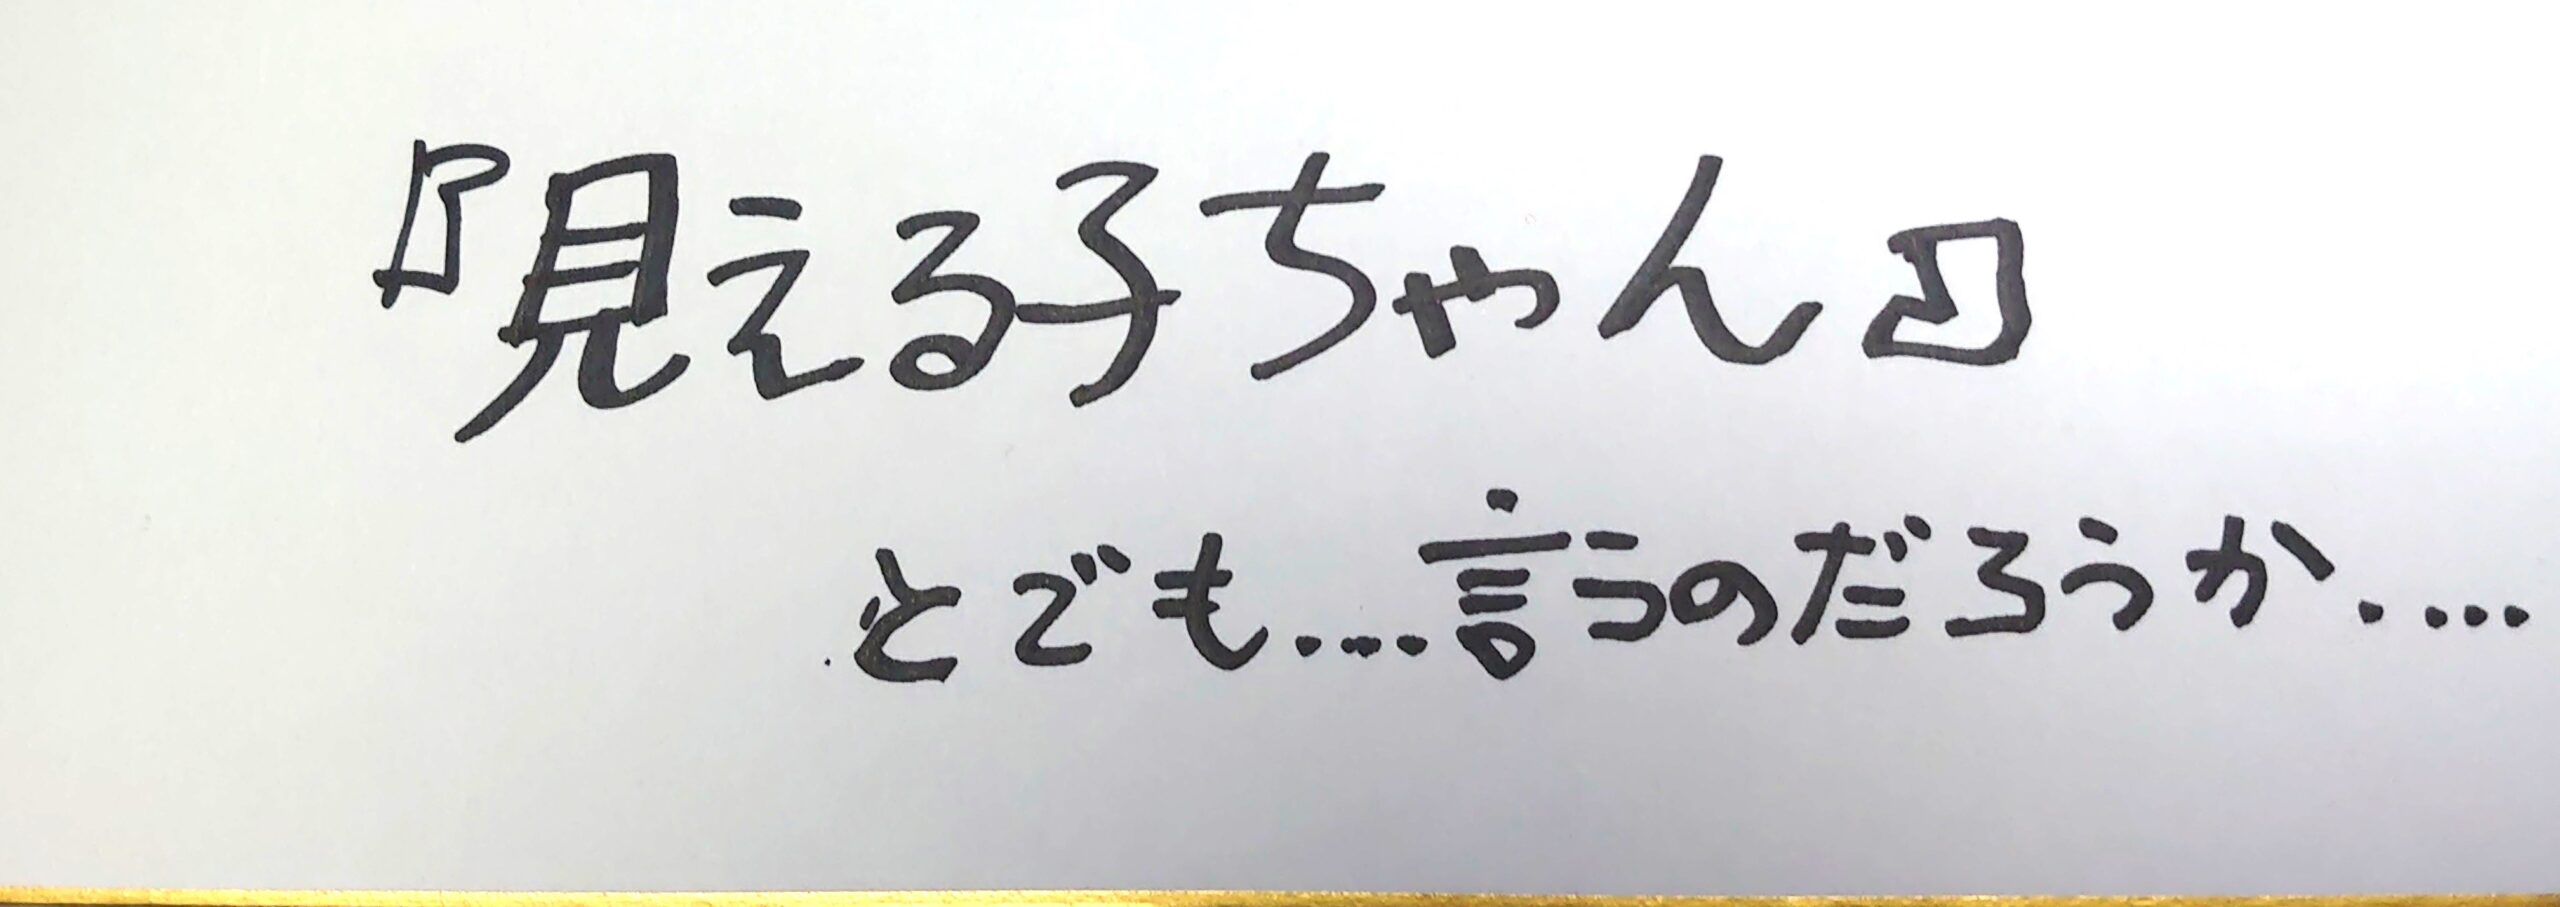 『見える子ちゃん』
とでも....言うのだろうか....